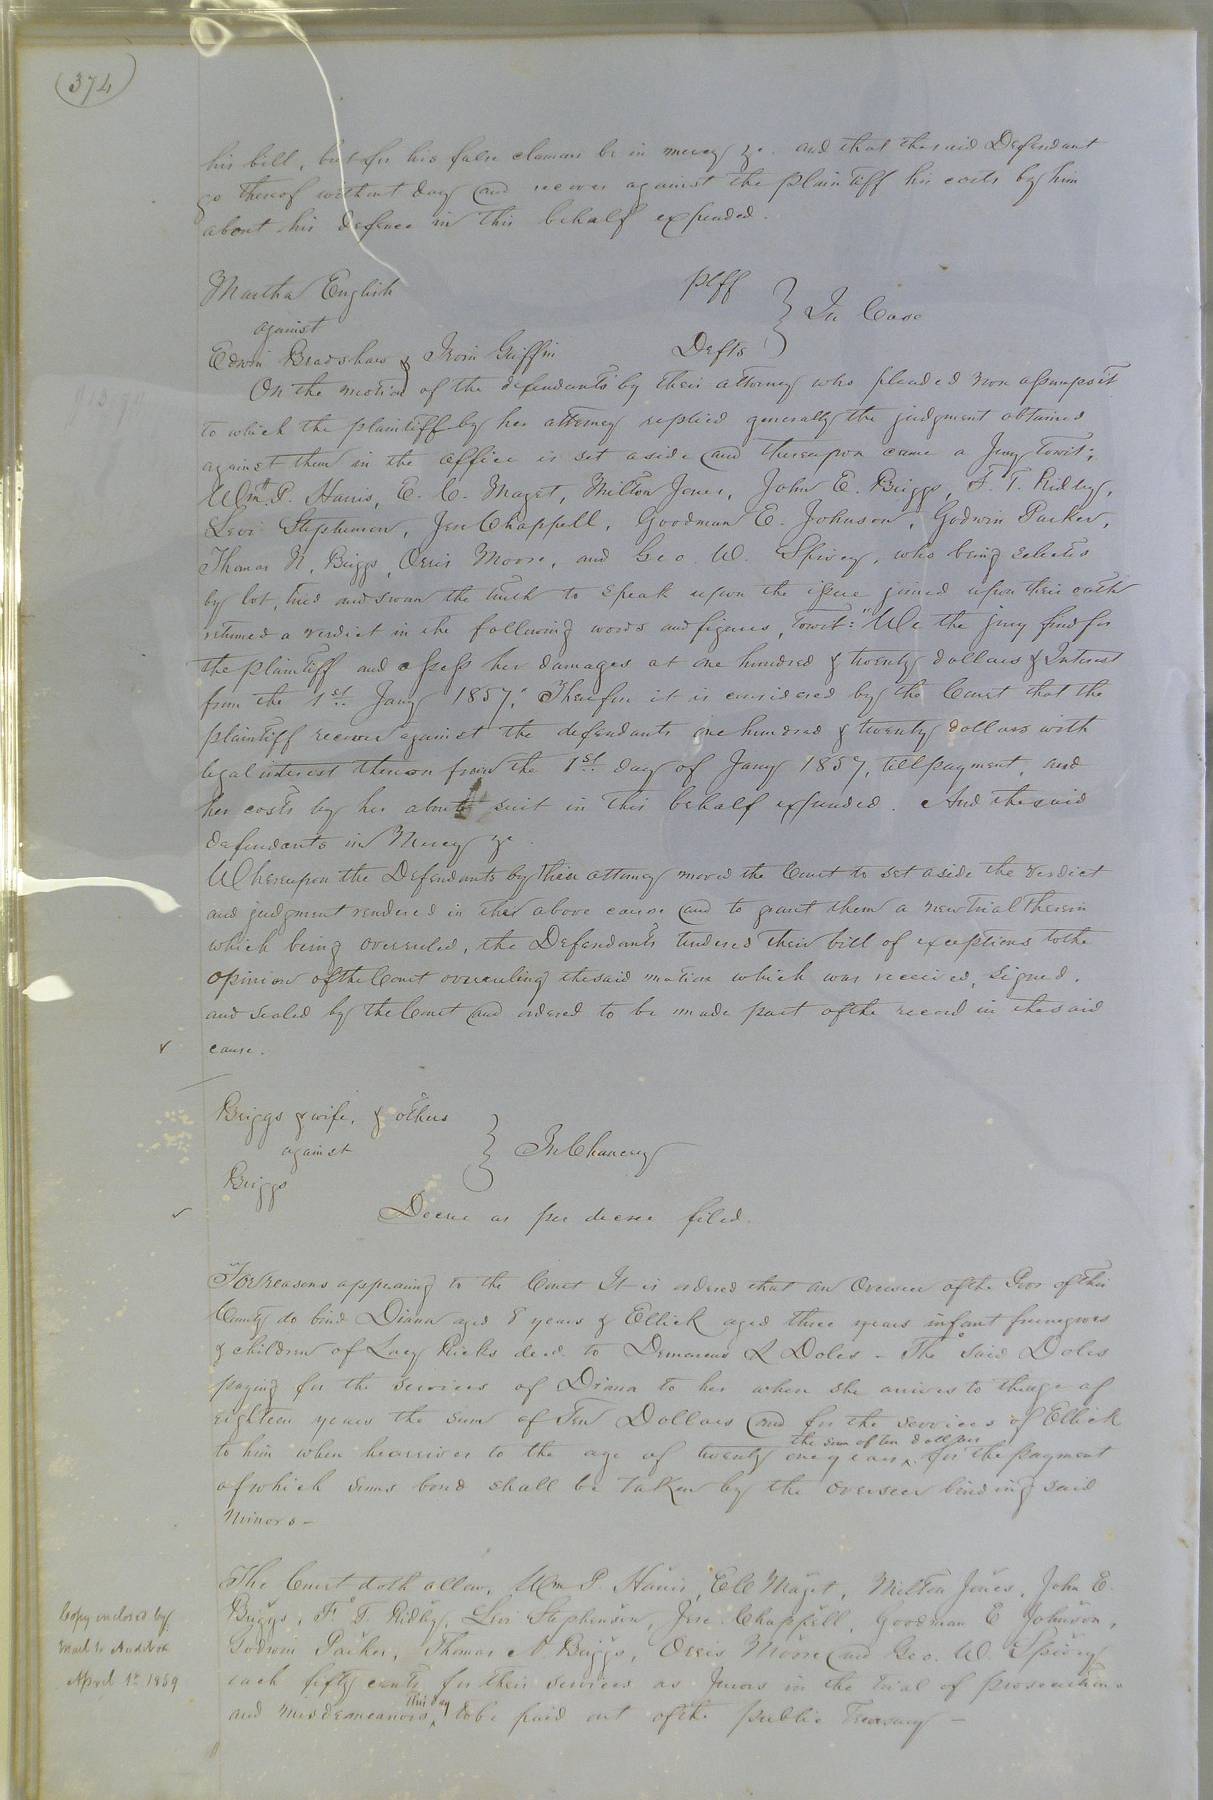 (374)
his bill, but for his false clamour be in mercy &c. and that the said Defendant
go thereof without day and recover against the plaintiff his costs by him
about his defence in this behalf expended.
Martha English Plff
against } In Case
Edwin Bradshaw & Irvin Griffin Defts
On the motion of the defendants by their attorney who pleaded non assumpsit
to which the plaintiff by her attorney replied generally the judgment obtained
against them in the office is set aside and thereupon came a Jury towit;
Wm. P. Harris, E. C. Maget, Milton Jones, John E. Briggs, F. T. Ridley,
Levi Stephenson, Jere Chappell, Goodman E. Johnson, Godwin Parker,
Thomas N. Briggs, Orris Moore, and Geo. W. Spivey, who being selected
by lot, tried and sworn the truth to speak upon the issue joined upon their oath
returned a verdict in the following words and figures, towit: "We the jury find for
the plaintiff and assess her damages at one hundred & twenty dollars & Interest
from the 1st. Jany 1857." Therefore it is considered by the Court that the
plaintiff recover against the defendants one hundred & twenty dollars with
legal interest thereon from the 1st. day of Jany 1857, till payment, and
her costs by her about suit in this behalf expended. And the said
defendants in Mercy &c.
Whereupon the Defendants by their attorney moved the Court to set aside the verdict
and judgment rendered in the above cause and to grant them a new Trial therein
which being overruled, the Defendants tendered their bill of exceptions to the
opinion of the Court overruling the said motion which was received, signed,
and sealed by the Court and ordered to be made part of the record in the said
cause.
Briggs & wife, & others
against } In Chancery
Briggs
Decree as per decree filed.
For reasons appearing to the Court It is ordered that an Overseer of the Poor of this
County do bind Diana aged 8 years & Ellick aged three years infant free negroes
& children of Lucy Ricks decd. to Demarcus L Doles - The said Doles
paying for the services of Diana to her when she arrives to the age of
eighteen years the sum of Ten Dollars and for the services of Ellick
to him when he arrives to the age of twenty one years ^ the sum of ten dollars for the payment
of which sums bond shall be taken by the overseer binding said
minors -
The Court doth allow, Wm P. Harris, E C Maget, Milton Jones, John E.
Briggs, F. T. Ridley, Levi Stephenson, Jere. Chappell, Goodman E Johnson,
Godwin Parker, Thomas N Briggs, Orris Moore and Geo. W. Spivey
each fifty cents for their services as Jurors in the trial of prosecutions
and misdemeanors ^ this day to be paid out of the public Treasury -
Copy enclosed by
mail to Auditor
April 1st 1859